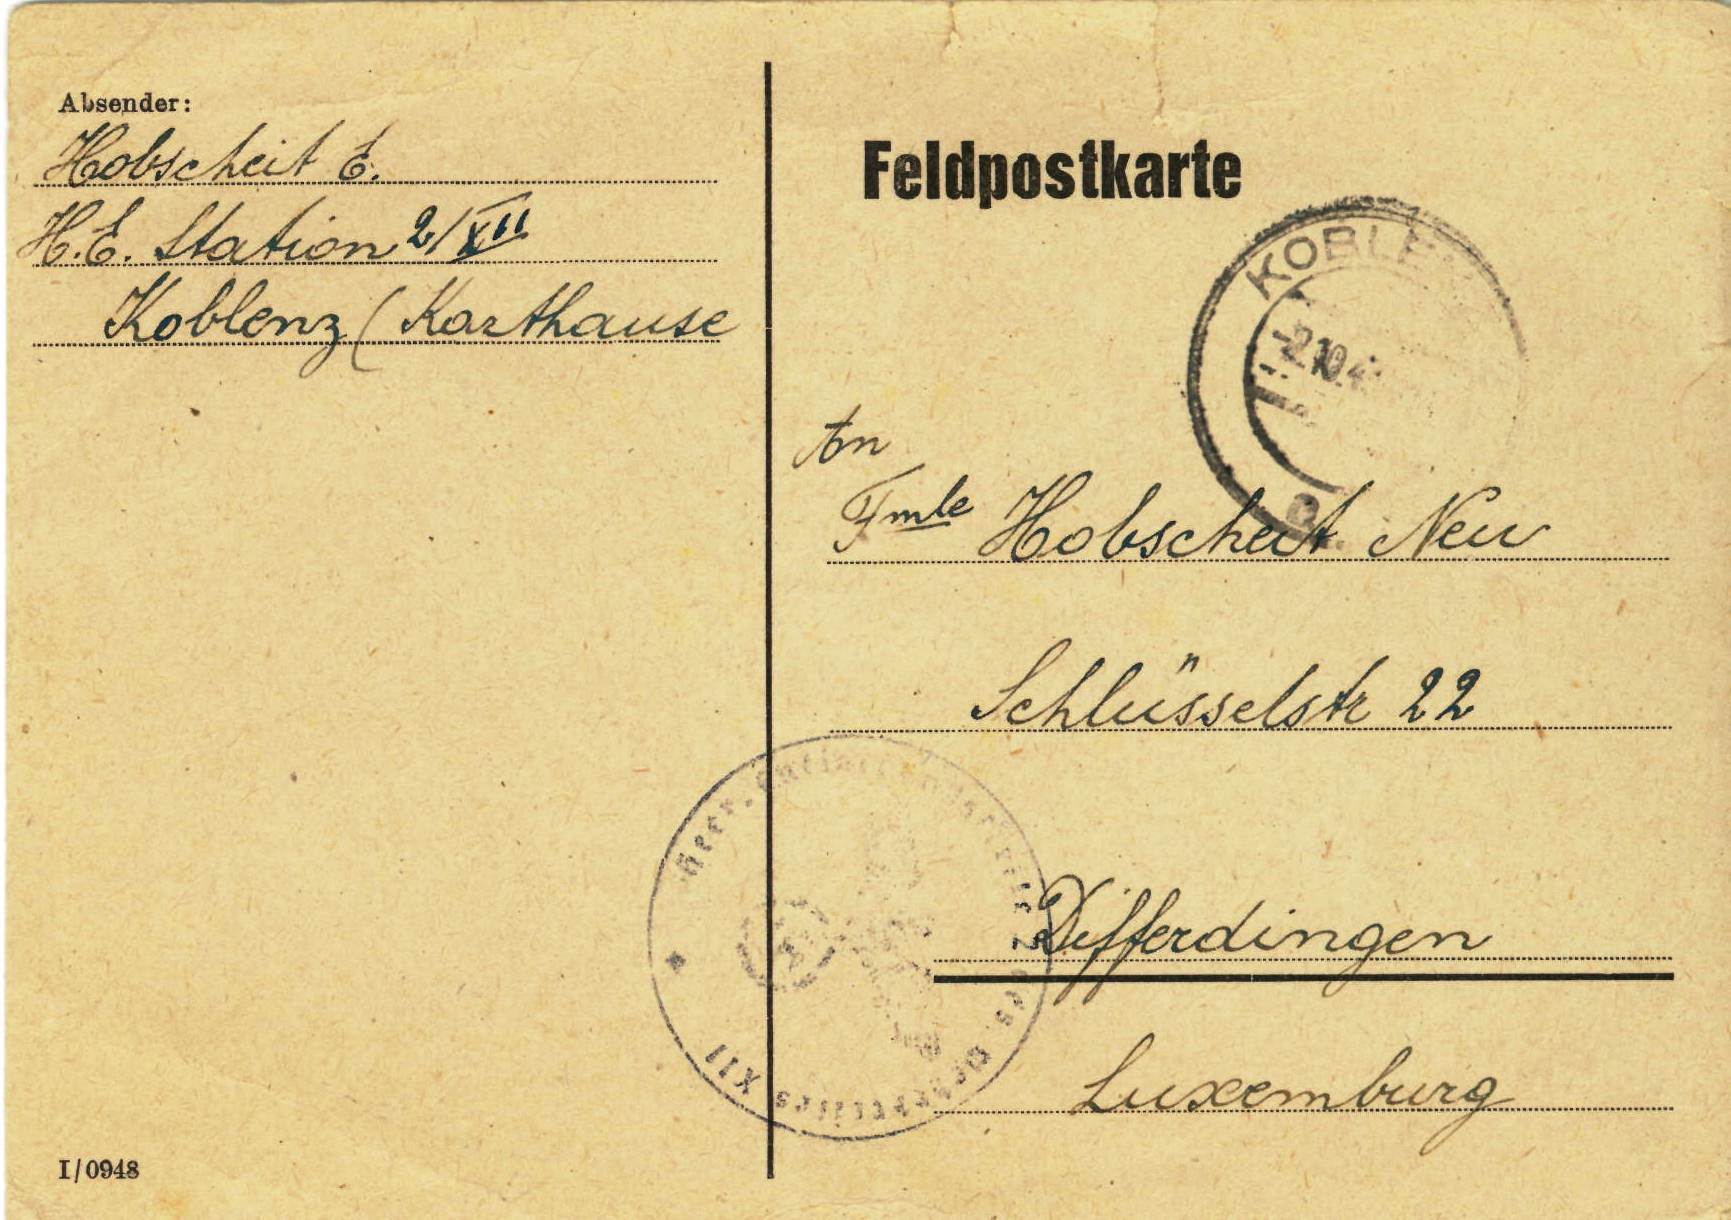 Absender:
Hobscheit E.
H.E. Station 2/XII
Koblenz (Karthause
I/0948
Feldpostkarte
KOBLE
-2.10.4
An
Fmle Hobscheit Neu
Schlüsselstr 22
Differdingen
Luxemburg
Heer
2 des Wehrkreises XII